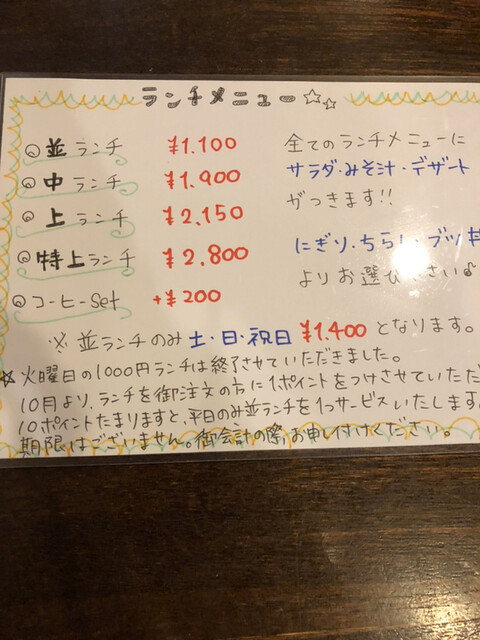 ランチメニュー☆☆
◎並ランチ ¥1.100
◎中ランチ ¥1.900
◎上ランチ ¥2.150
◎特上ランチ ¥2.800
◎コーヒーSet +¥200
全てのランチメニューに
サラダ・みそ汁・デザート
がつきます!!
にぎり・ちらし・ブツ丼
よりお選び さい♪
※並ランチのみ土・日・祝日¥1.400となります。
☆火曜日の1000円ランチは終了させていただきました。
10月より、ランチを御注文の方に1ポイントをつけさせていただ
10ポイントたまりますと、平日のみ並ランチを1つサービスいたします。
期限はございません。御会計の際、お申し付けください。